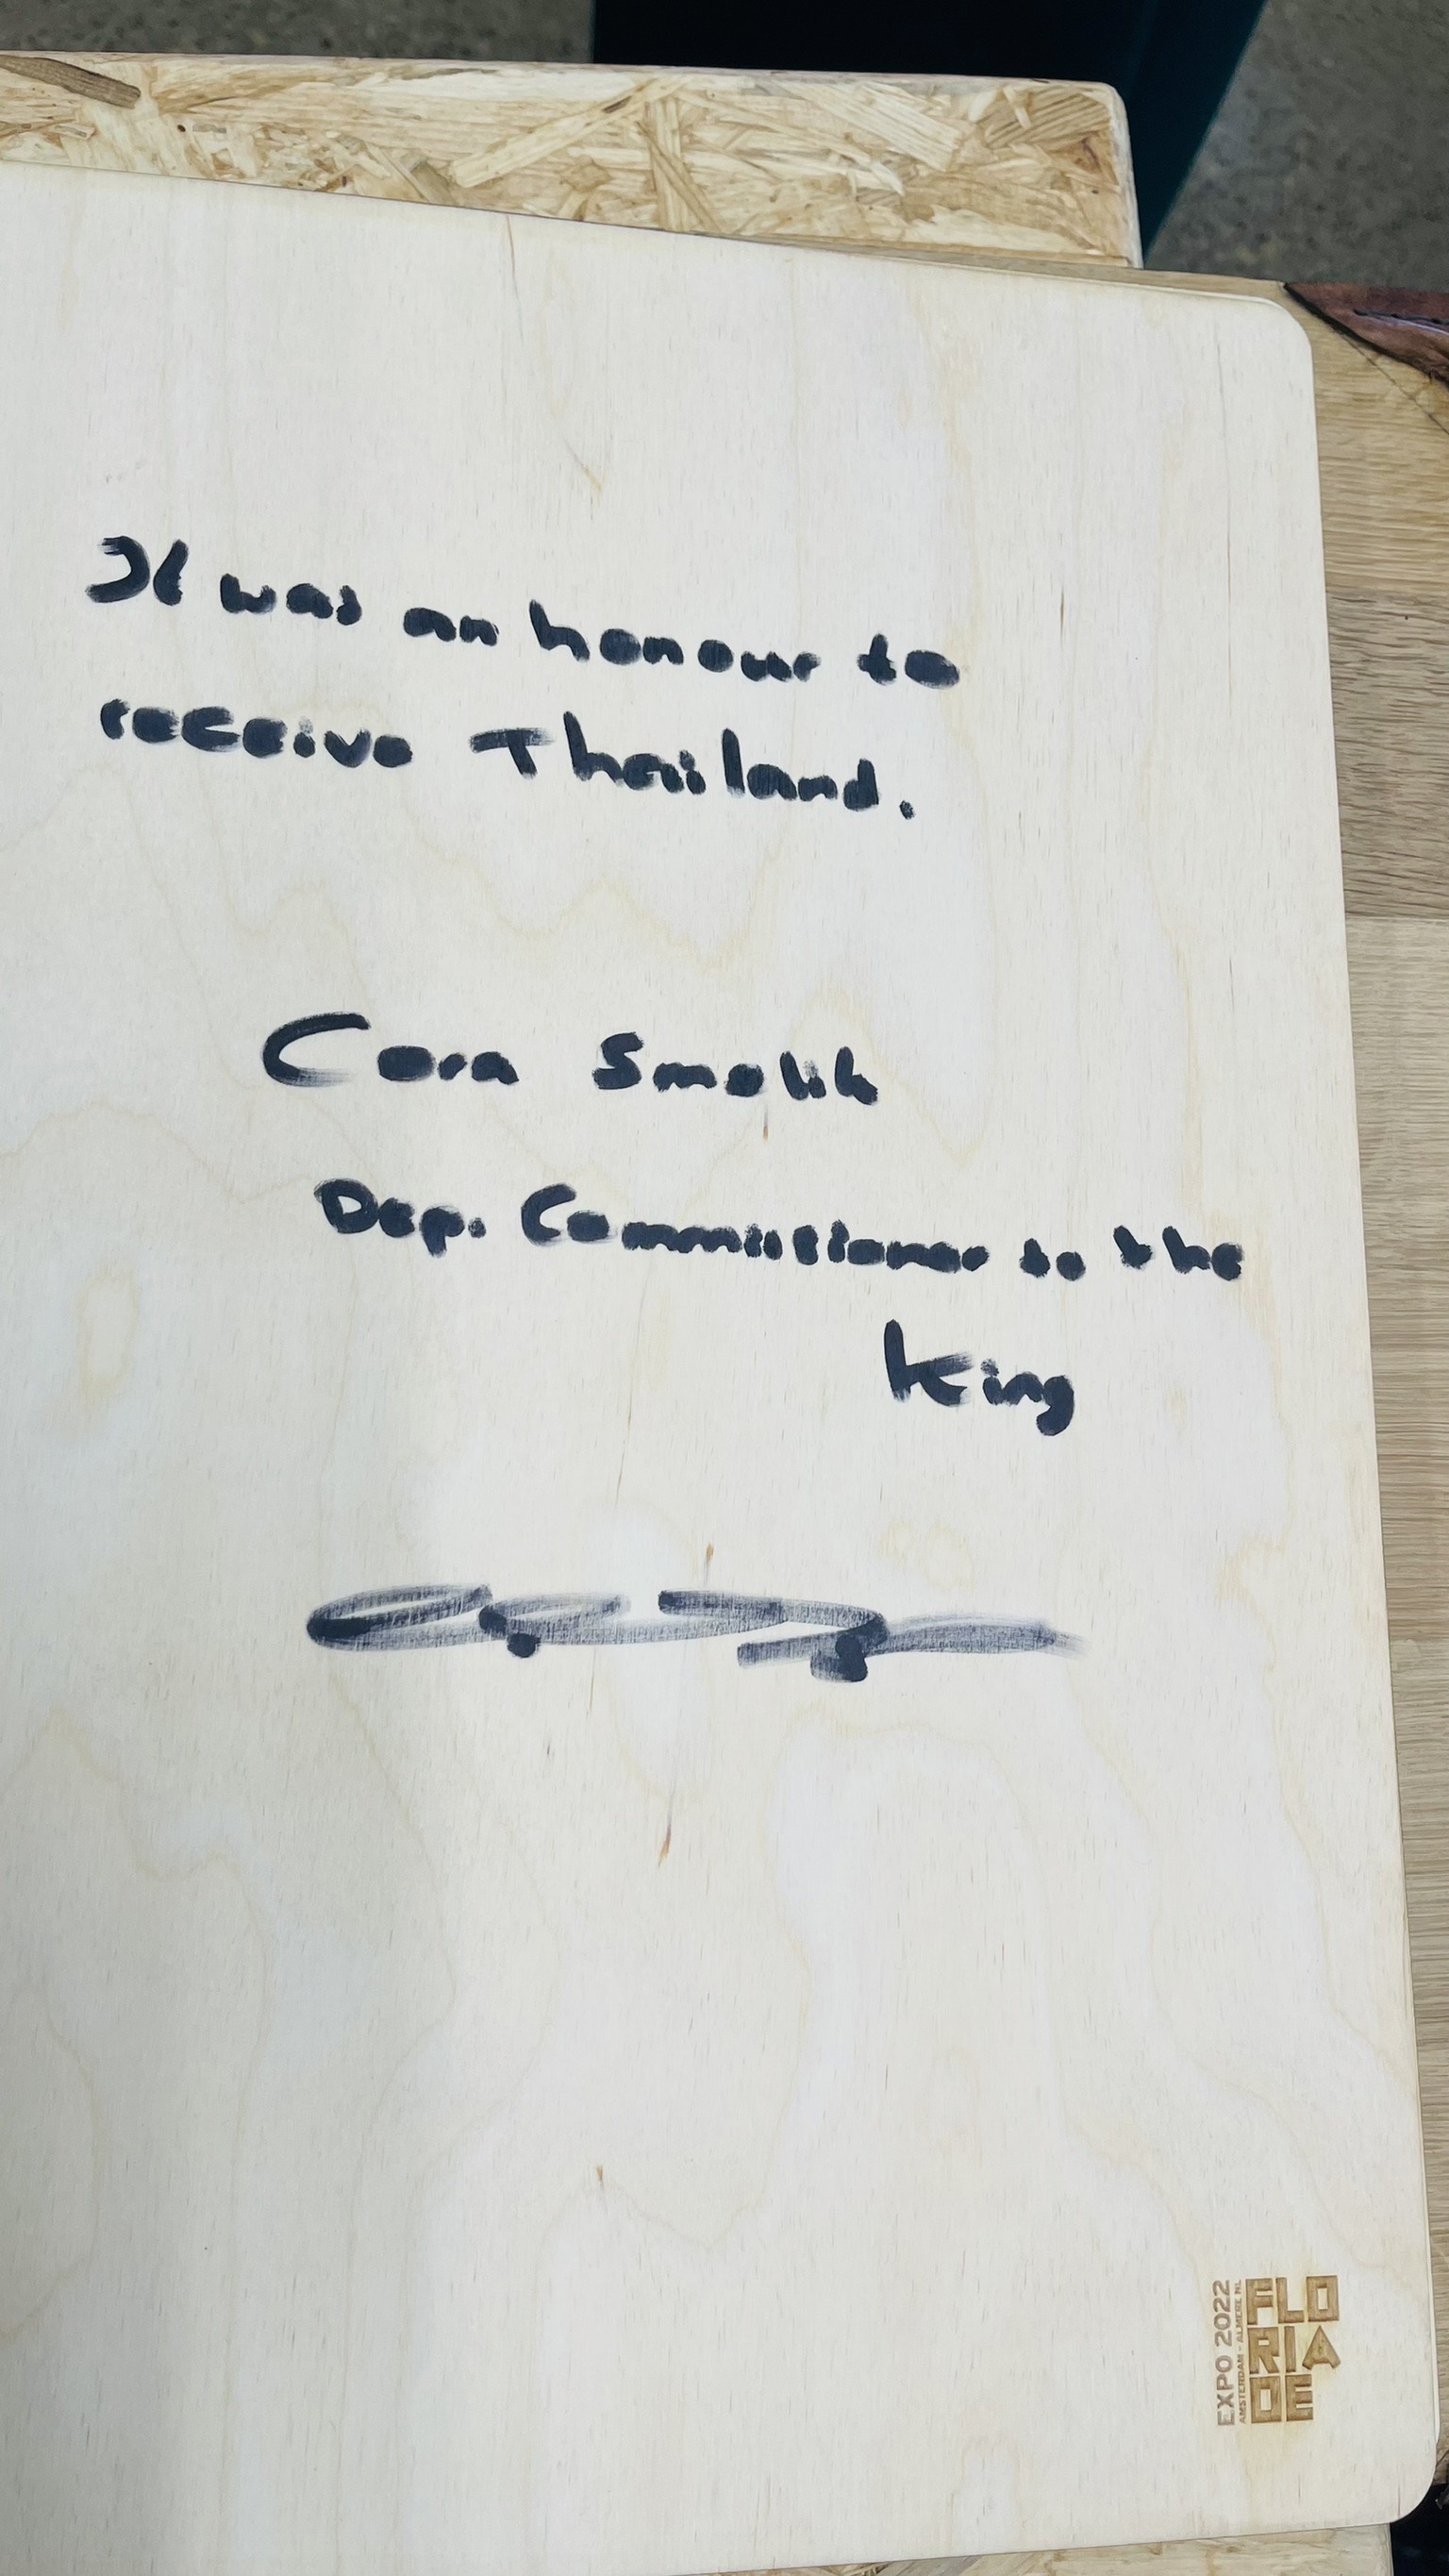 It was an honour to
receive Thailand.
Cora Smelik
Dep. Commissioner to the
King
EXPO 2022
AMSTERDAM - ALMERE NL
FLO
RIA
DE